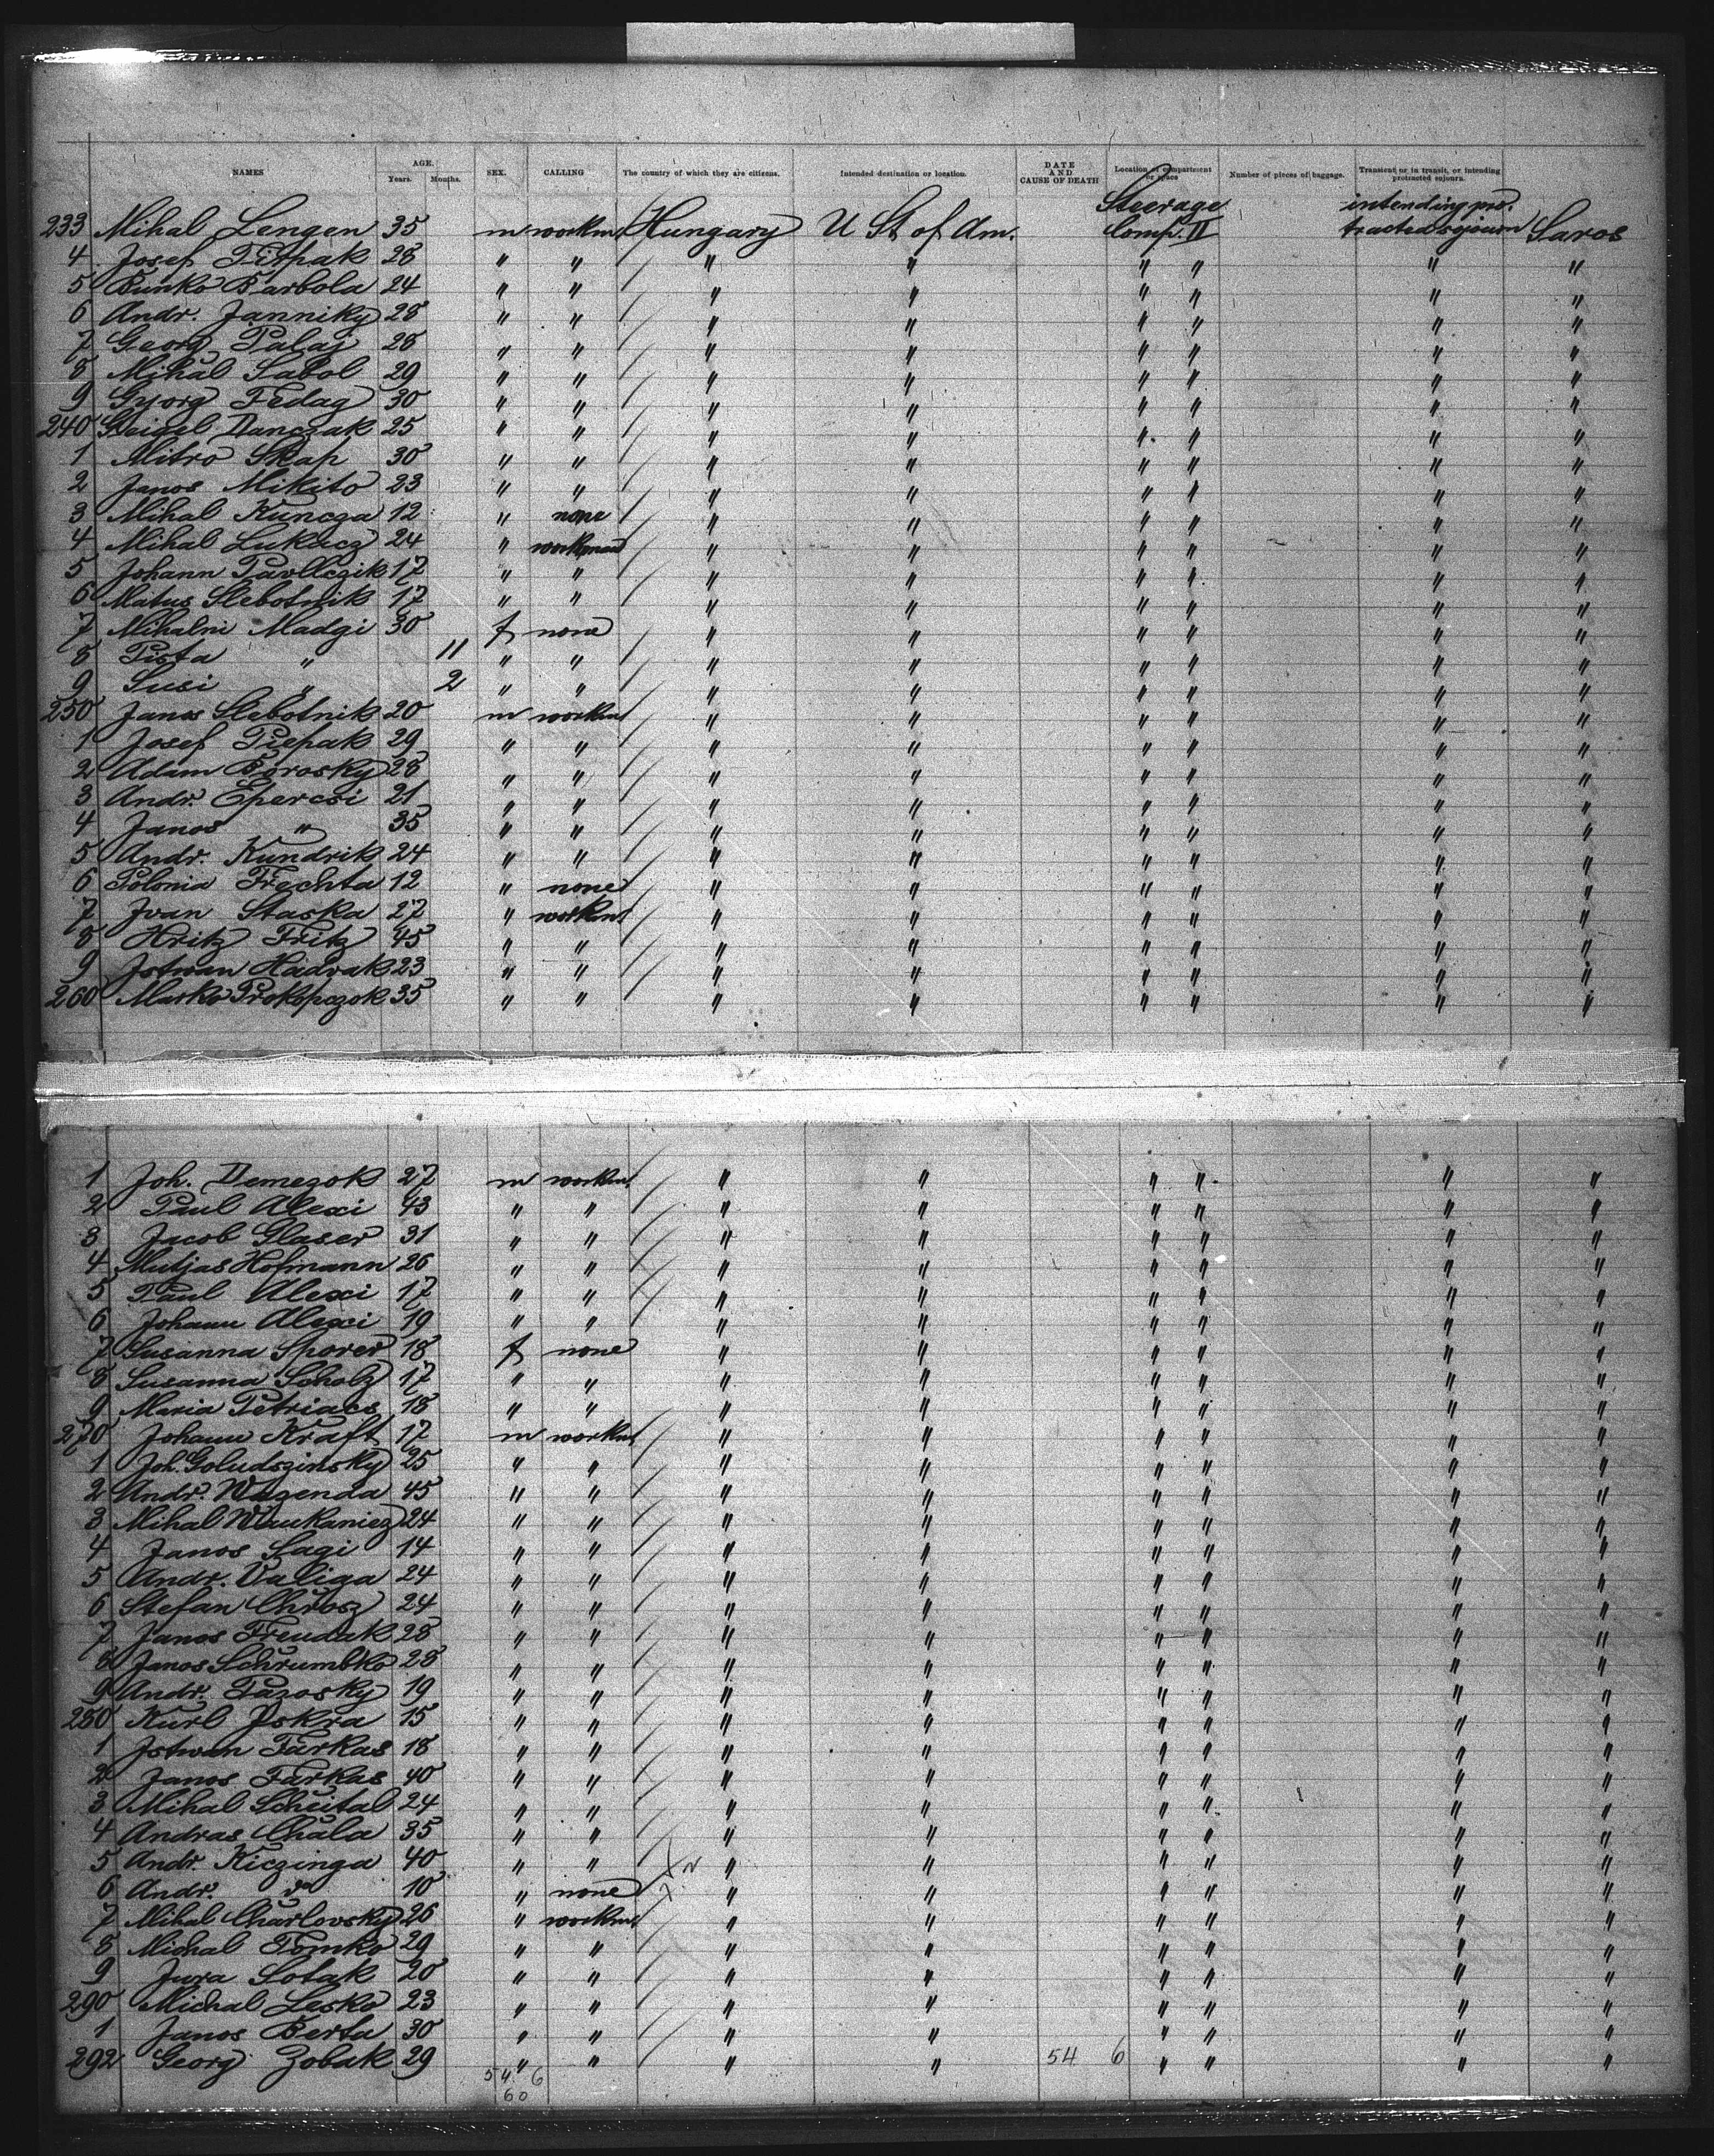 NAMES AGE. Years. Months. SEX. CALLING The country of which they are citizens. Intended destination or location. DATE AND CAUSE OF DEATH Location of compartment or space Number of pieces of baggage. Transient or in transit, or intending protracted sojourn.
233 Mihal Lengen 35 m workm Hungary U St of Am. Steerage Comp. II intending pro-tracted sojourn Saros
4 Josef 28 " " " " " " " "
5 Bunko Barbola 24 " " " " " " " "
6 Andr. Janniky 28 " " " " " " " "
7 Georg Palaj 28 " " " " " " " "
8 Mihal Sabol 29 " " " " " " " "
9 Gyorg Fedag 30 " " " " " " " "
240 Danczak 25 " " " " " " " "
1 Mitro Skap 30 " " " " " " " "
2 Janos Mikito 23 " " " " " " " "
3 Mihal Kuncza 12 " none " " " " " "
4 Mihal Lukacz 24 " workman " " " " " "
5 Johann Pavllczik 17 " " " " " " " "
6 Matus Slebotnik 17 " " " " " " " "
7 Mihalni Madgi 30 f none " " " " " "
8 Pista " 11 " " " " " " " "
9 Susi " 2 " " " " " " " "
250 Janos Slebotnik 20 m workm " " " " " "
1 Josef Piepak 29 " " " " " " " "
2 Adam Borosky 28 " " " " " " " "
3 Andr. Epercsi 21 " " " " " " " "
4 Janos " 35 " " " " " " " "
5 Andr. Kundrik 24 " " " " " " " "
6 Polonia Frechta 12 " none " " " " " "
7 Ivan Staska 27 " workm " " " " " "
8 Hritz Fritz 45 " " " " " " " "
9 Istwan Hadvak 23 " " " " " " " "
260 Marko Prokopczok 35 " " " " " " " "
1 Joh. Demezok 27 m workm " " " " " "
2 Paul Alexi 43 " " " " " " " "
3 Jacob Glaser 31 " " " " " " " "
4 Mutjas Hofmann 26 " " " " " " " "
5 Paul Alexi 17 " " " " " " " "
6 Johann Alexi 19 " " " " " " " "
7 Susanna Sporer 18 f none " " " " " "
8 Susanna Scholz 17 " " " " " " " "
9 Maria Petriacs 18 " " " " " " " "
270 Johann Kraft 17 m workm " " " " " "
1 Joh. Goludszinsky 25 " " " " " " " "
2 Andr. Wagenda 45 " " " " " " " "
3 Mihal Waukaniez 24 " " " " " " " "
4 Janos Sagi 14 " " " " " " " "
5 Andr. Valiga 24 " " " " " " " "
6 Stefan Chrosz 24 " " " " " " " "
7 Janos Freudak 28 " " " " " " " "
8 Janos Schrumbko 28 " " " " " " " "
9 Andr. Pazosky 19 " " " " " " " "
280 Kurl Iskra 15 " " " " " " " "
1 Istwan Farkas 18 " " " " " " " "
2 Janos Farkas 40 " " " " " " " "
3 Mihal Schutal 24 " " " " " " " "
4 Andras Chala 35 " " " " " " " "
5 Andr. Kiczinga 40 " " " " " " " "
6 Andr. do 10 " none " " " " " "
7 Mihal Charlovsky 26 " workm " " " " " "
8 Michal Tomko 29 " " " " " " " "
9 Jura Sotak 20 " " " " " " " "
290 Michal Lesko 23 " " " " " " " "
1 Janos Berta 30 " " " " " " " "
292 Georg Zobak 29 " " " " 54 6 " " " "
54. 6
60